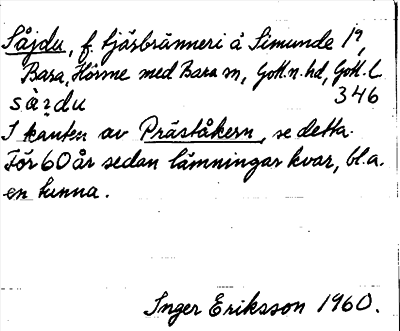 Såjdu, f. tjärbränneri å Simunde 1⁹,
Bara, Hörsne med Bara sn, Gotl. n. hd, Gotl. l.
sàı̨du 346
I kanten av Präståkern, se detta.
För 60 år sedan lämningar kvar, bl.a.
en tunna.
Inger Eriksson 1960.